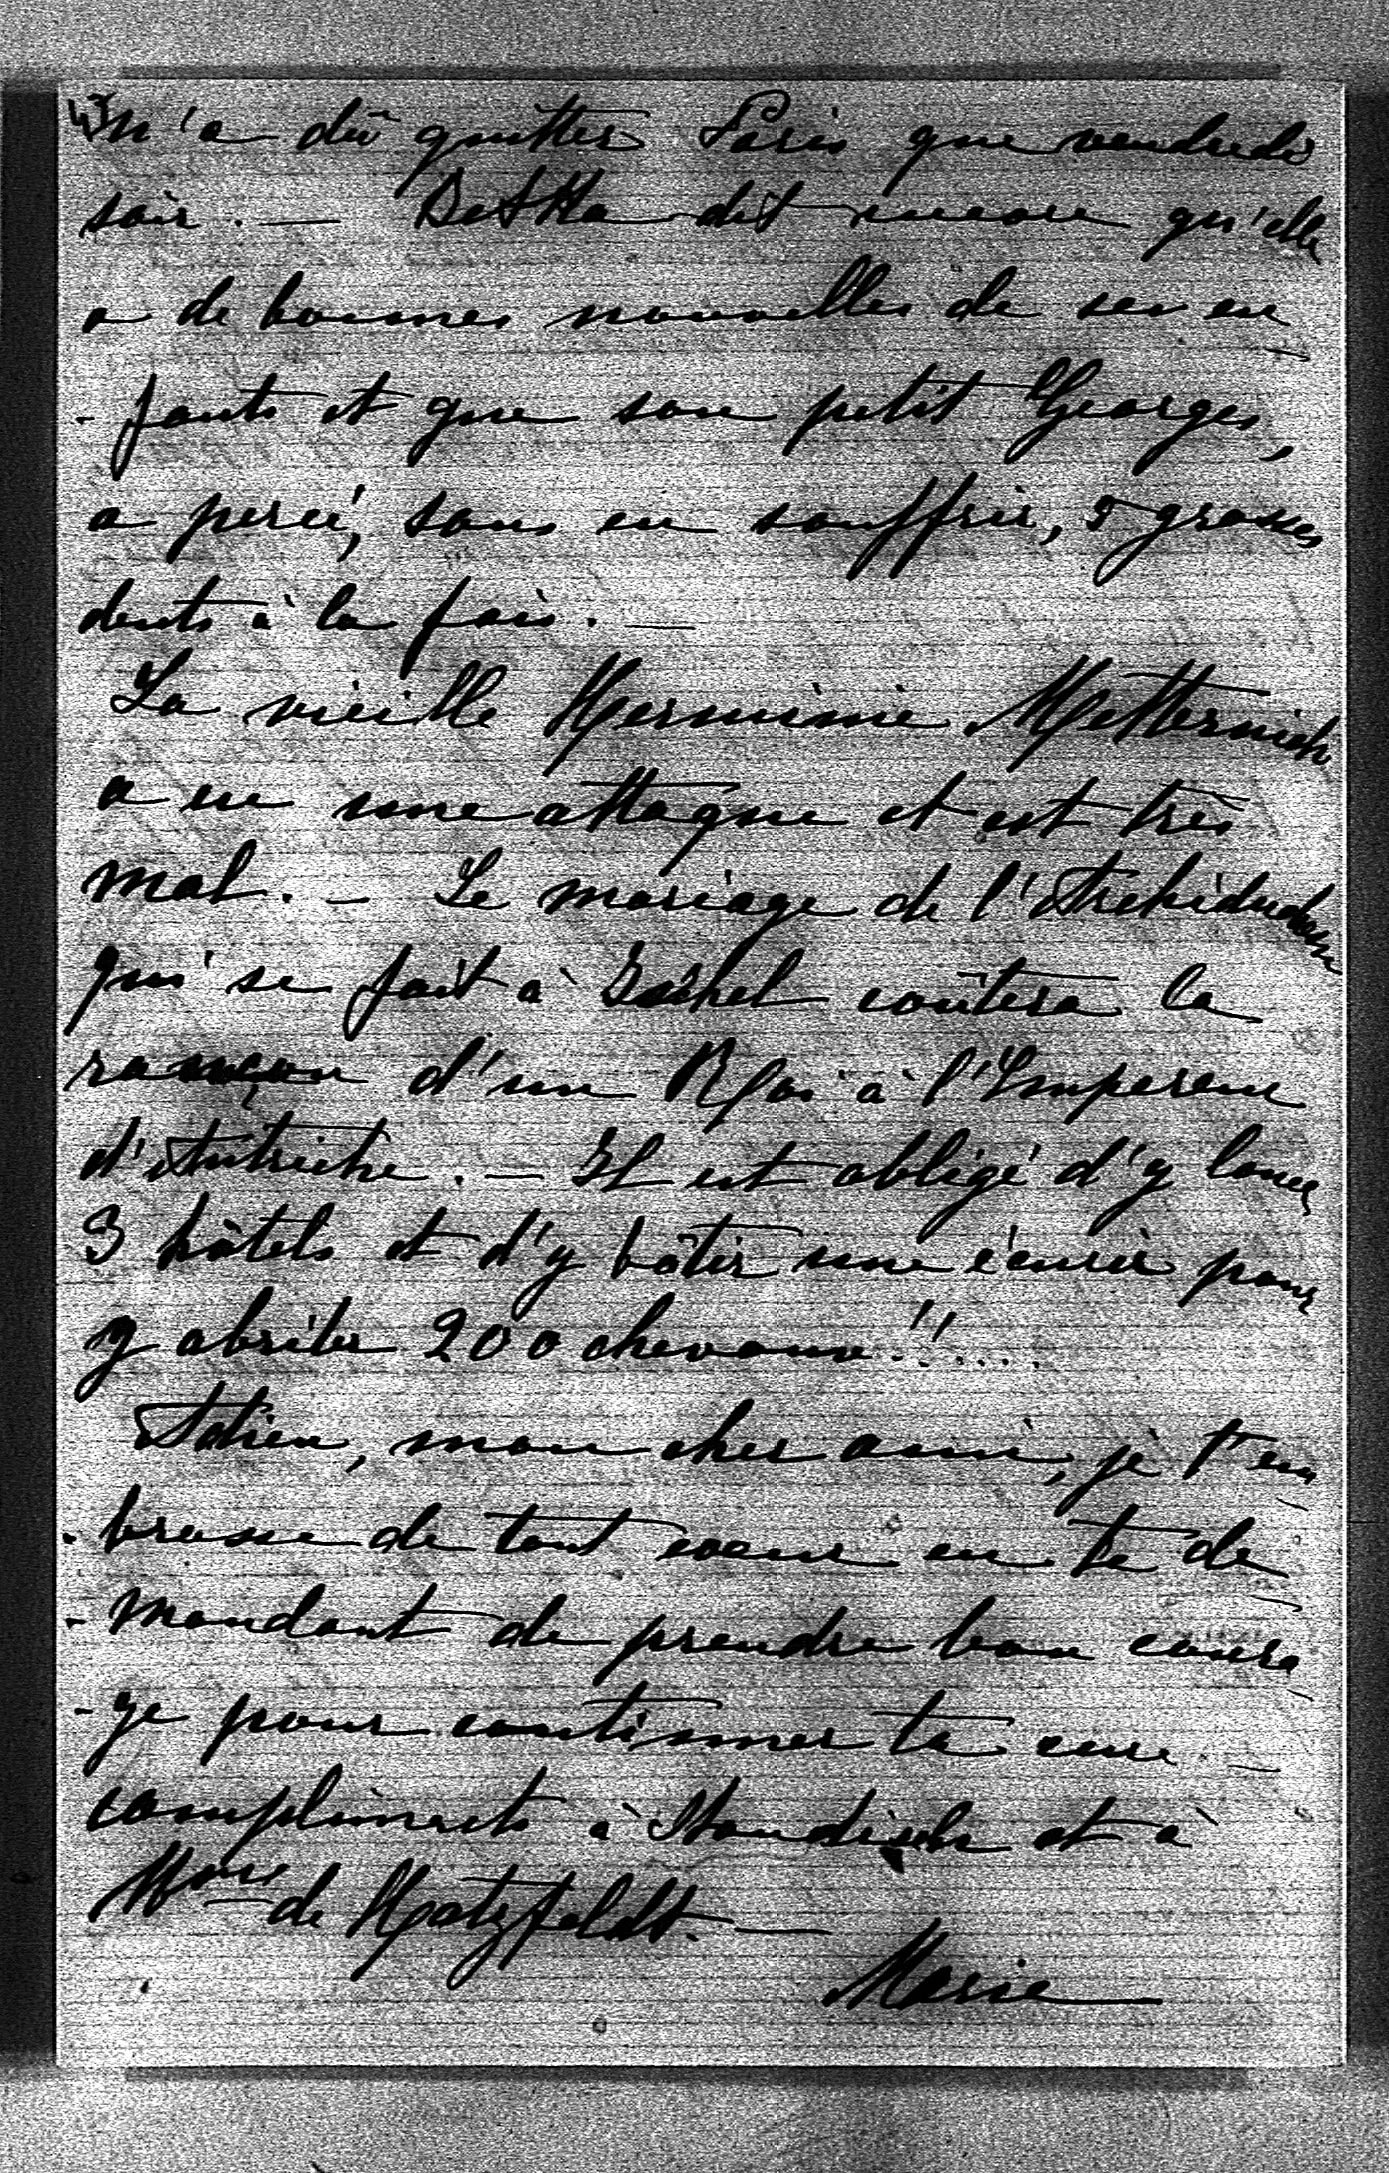 n'a dû quitter Paris que vendredi
soir. — Betka dit encore qu'elle
a de bonnes nouvelles de ses en
- fants et que son petit Georges,
a percé, sans en souffrir, 5 grosses
dents à la fois. —
La vieille Herminie Metternich
a eu une attaque et est très
mal. — Le mariage de l'Archiduchesse
qui se fait à Ischel coûtera la
rançon d'un Roi à l'Empereur
d'Autriche. — Il est obligé d'y louer
3 hôtels et d'y bâtir une écurie pour
y abriter 200 chevaux!!.....
Adieu, mon cher ami, je t'em
- brasse de tout coeur en te de
- mandant de prendre bon coura
- ge pour continuer ta cure. —
compliments à Standish et à
Mme de Hatzfeldt. —
Marie